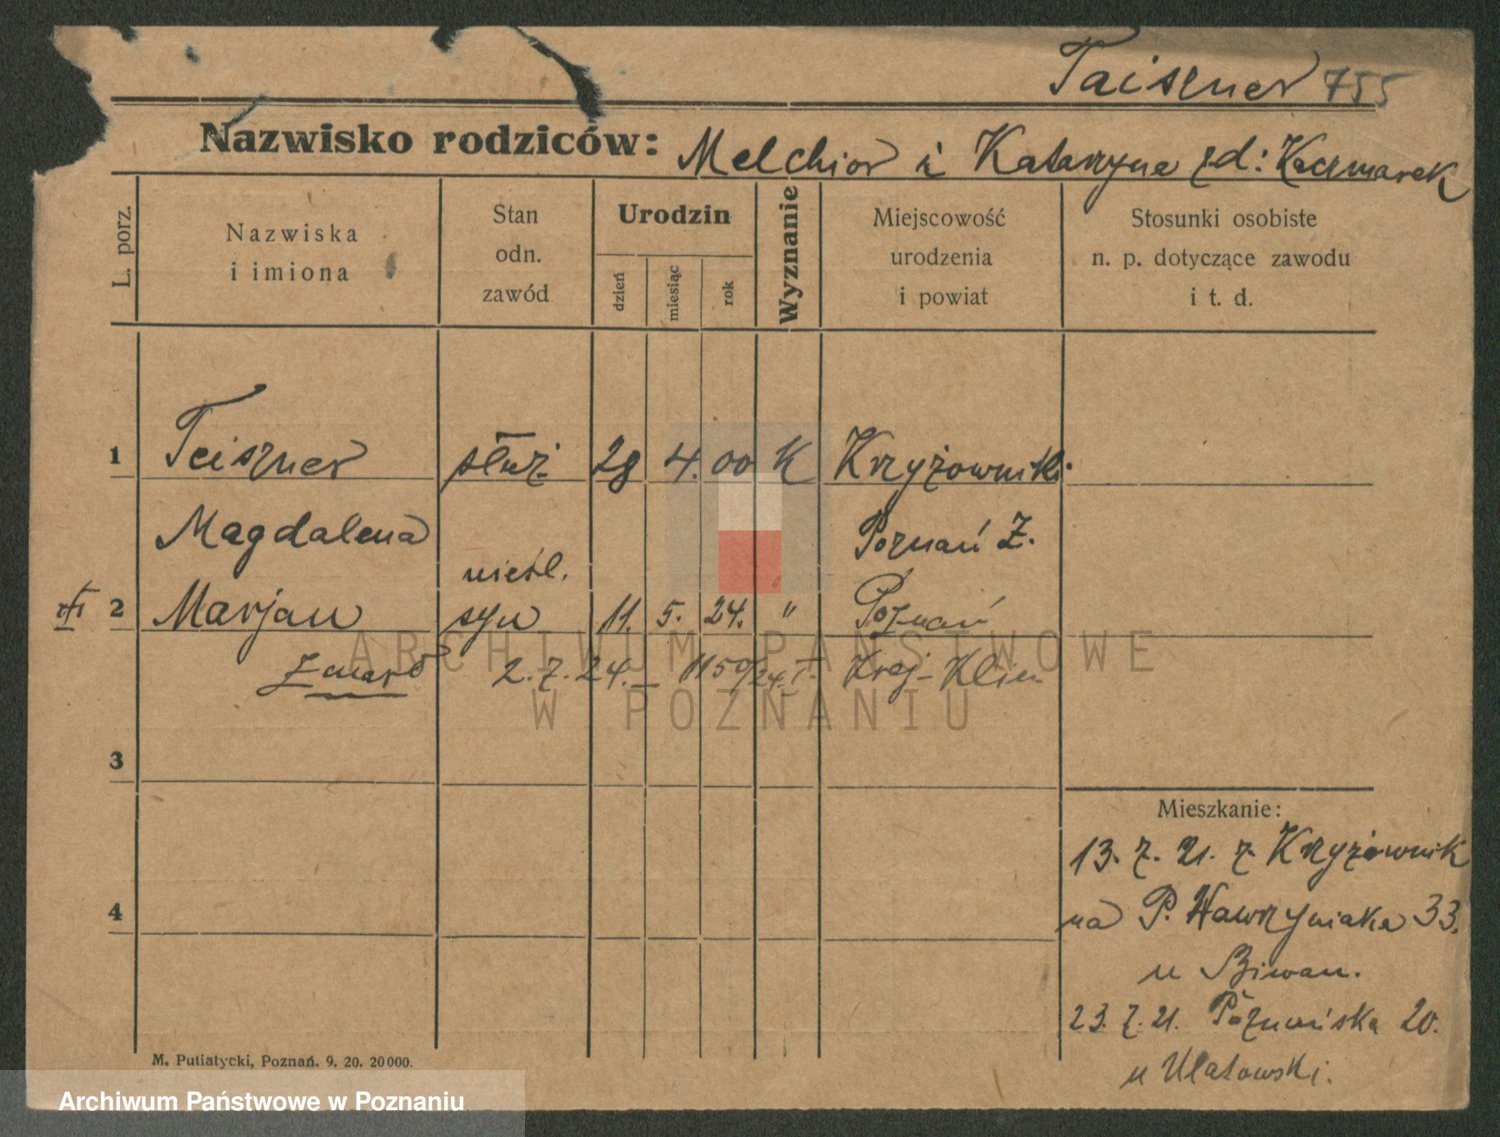 Taiszner 755
Nazwisko rodziców: Melchior i Katarzyna zd: Kaczmarek
L. porz.
Nazwiska
i imiona
Stan
odn.
zawód
Urodzin
dzień
miesiąc
rok
Wyznanie
Miejscowość
urodzenia
i powiat
Stosunki osobiste
n. p. dotyczące zawodu
i t. d.
1 Teiszner służ. 28 4. 00 K Krzyżowniki
Magdalena Poznań Z.
nieśl.
2 Marjan syn 11. 5. 24. " Poznań
Zmarł 2.7.24.
3
4
Mieszkanie:
13. 7. 21. z Krzyżownik
na P. Wawrzyniaka 33.
u
23. 7. 21. Poznańska 20.
u Ulatowski.
M. Putiatycki, Poznań. 9. 20. 20000.
ARCHIWUM PAŃSTWOWE
W POZNANIU
Archiwum Państwowe w Poznaniu